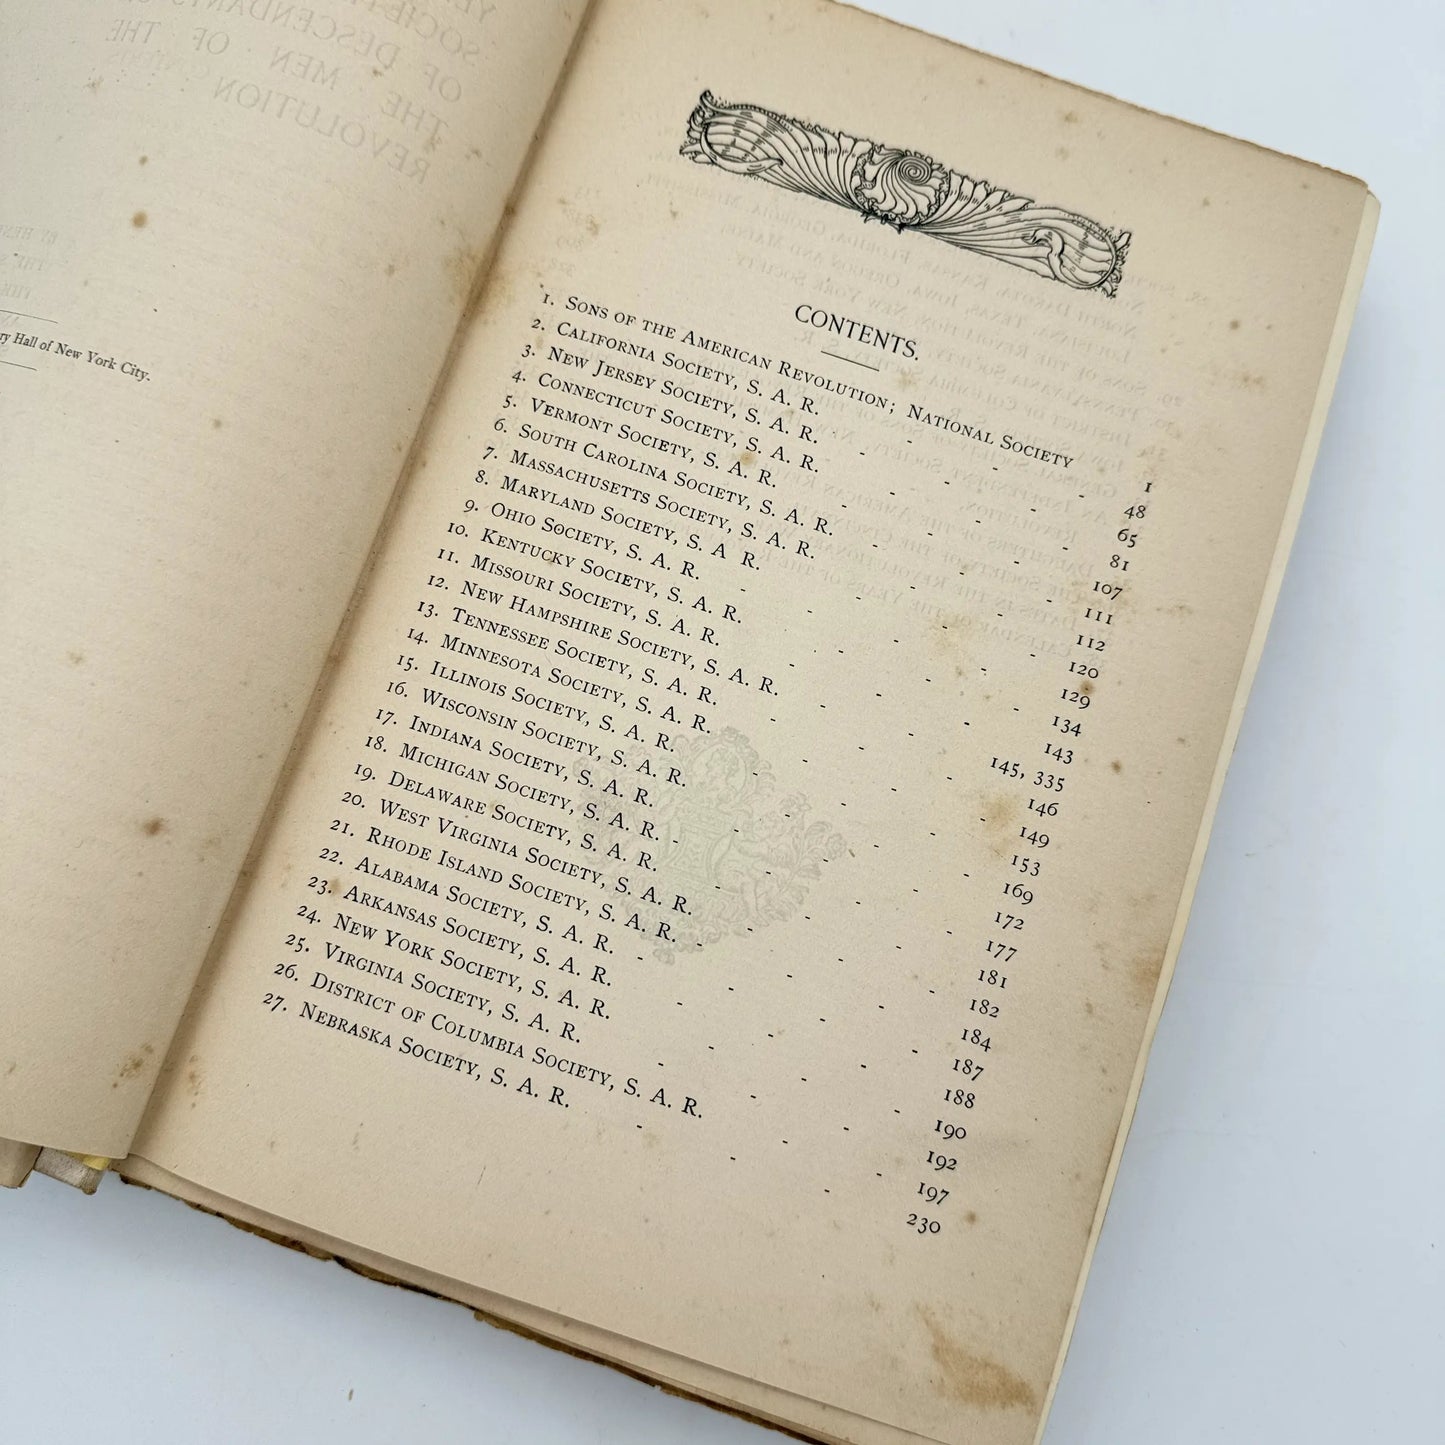 ry Hall of New York City.
CONTENTS.
1. SONS OF THE AMERICAN REVOLUTION; NATIONAL SOCIETY - 1
2. CALIFORNIA SOCIETY, S. A. R. - - - 48
3. NEW JERSEY SOCIETY, S. A. R. - - - 65
4. CONNECTICUT SOCIETY, S. A. R. - - - 81
5. VERMONT SOCIETY, S. A. R. - - - 107
6. SOUTH CAROLINA SOCIETY, S. A. R. - - - 111
7. MASSACHUSETTS SOCIETY, S. A. R. - - - 112
8. MARYLAND SOCIETY, S. A R. - - - 120
9. OHIO SOCIETY, S. A. R. - - - - 129
10. KENTUCKY SOCIETY, S. A. R. - - - 134
11. MISSOURI SOCIETY, S. A. R. - - - 143
12. NEW HAMPSHIRE SOCIETY, S. A. R. - - 145, 335
13. TENNESSEE SOCIETY, S. A. R. - - - 146
14. MINNESOTA SOCIETY, S. A. R. - - - 149
15. ILLINOIS SOCIETY, S. A. R. - - - 153
16. WISCONSIN SOCIETY, S. A. R. - - - 169
17. INDIANA SOCIETY, S. A. R. - - - - 172
18. MICHIGAN SOCIETY, S. A. R. - - - - 177
19. DELAWARE SOCIETY, S. A. R. - - - 181
20. WEST VIRGINIA SOCIETY, S. A. R. - - - 182
21. RHODE ISLAND SOCIETY, S. A. R. - - - - 184
22. ALABAMA SOCIETY, S. A. R. - - - - 187
23. ARKANSAS SOCIETY, S. A. R. - - - 188
24. NEW YORK SOCIETY, S. A. R. - - - 190
25. VIRGINIA SOCIETY, S. A. R. - - - 192
26. DISTRICT OF COLUMBIA SOCIETY, S. A. R. - - 197
27. NEBRASKA SOCIETY, S. A. R. - - - 230